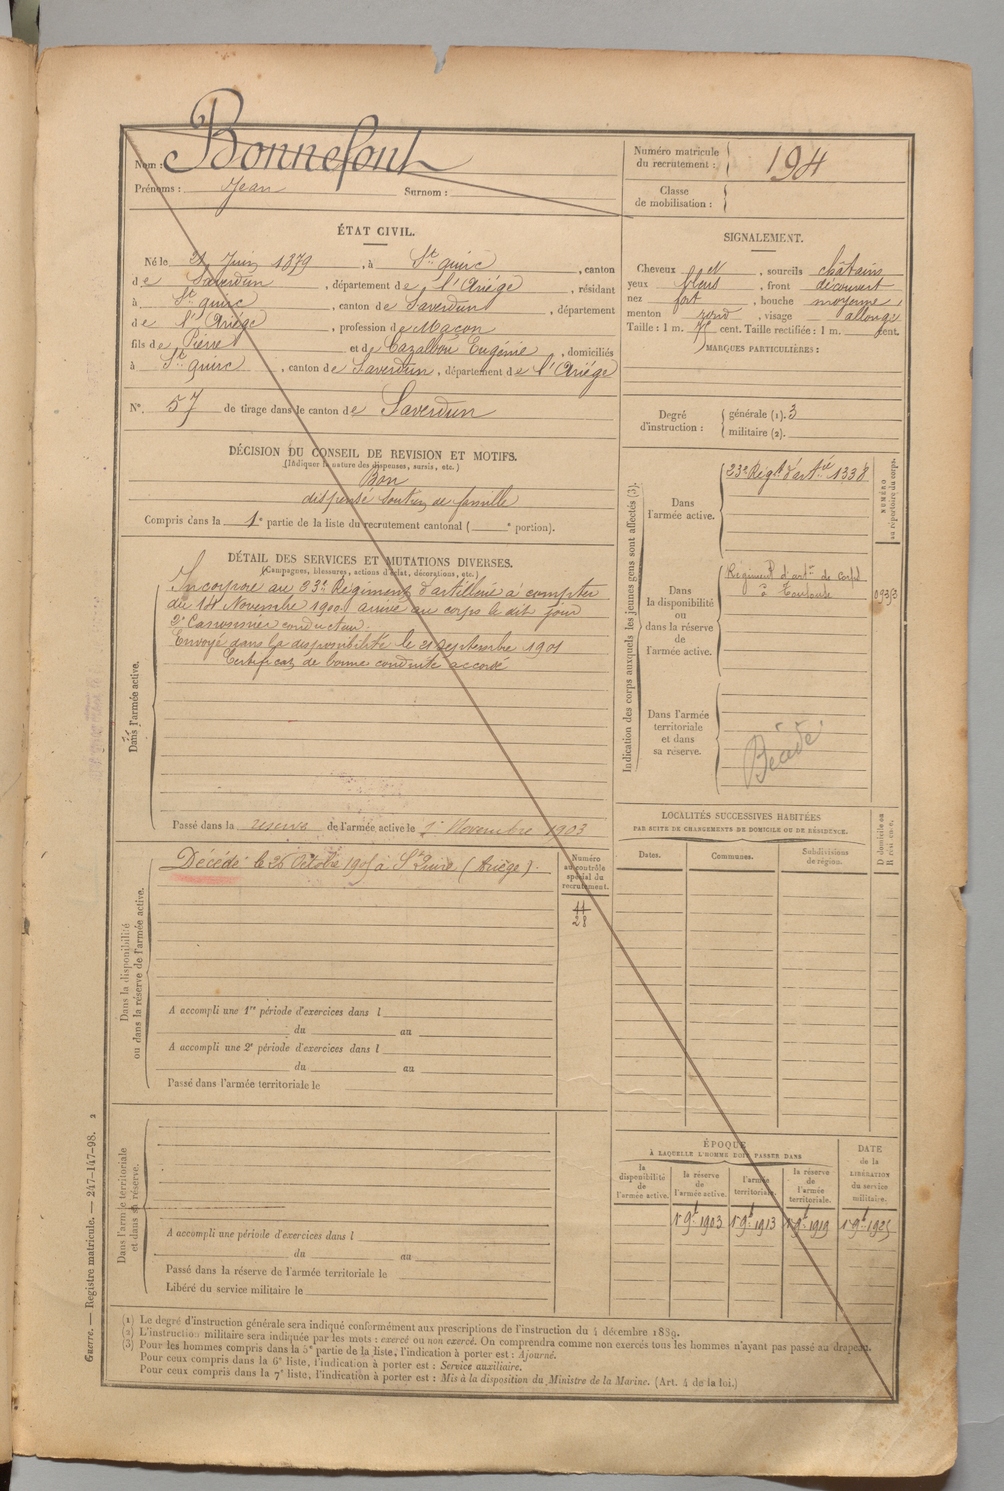 Nom : Bonnefont
Prénoms : Jean Surnom :
Numéro matricule du recrutement : 194
Classe de mobilisation :
ÉTAT CIVIL.
Né le 21 Juin 1879, à St quirc, canton
de Saverdun, département de l'Ariège, résidant
à St quirc, canton de Saverdun, département
de l'Ariège, profession de Maçon
fils de Pierre et de Cazalbou Eugénie, domiciliés
à St quirc, canton de Saverdun, département de l'Ariège
No. 57 de tirage dans le canton de Saverdun
SIGNALEMENT.
Cheveux et, sourcils châtains
yeux bleus, front découvert
nez fort, bouche moyenne,
menton rond, visage allongé
Taille : 1 m. cent. Taille rectifiée : 1 m. cent.
MARQUES PARTICULIÈRES :
Degré d'instruction : générale (1). 3
militaire (2).
DÉCISION DU CONSEIL DE REVISION ET MOTIFS.
(Indiquer la nature des dispenses, sursis, etc.)
Bon
dispensé soutien de famille
Compris dans la 1e partie de la liste du recrutement cantonal ( e portion).
DÉTAIL DES SERVICES ET MUTATIONS DIVERSES.
(Campagnes, blessures, actions d'éclat, décorations, etc.)
Dans l'armée active.
Incorporé au 23e Régiment d'artillerie à compter
du Novembre 1900. arrivé au corps le dit jour
2e Canonnier conducteur.
Envoyé dans la disponibilité le 21 septembre 1901
Certificat de bonne conduite accordé
Passé dans la réserve de l'armée active le 1er Novembre 1903
Indication des corps auxquels les jeunes gens sont affectés (3).
Dans l'armée active.
23e Régt d'artie 1338
NUMÉRO au répertoire du corps.
Dans la disponibilité ou dans la réserve de l'armée active.
Régiment d'artie de corps
à Toulouse
Dans l'armée territoriale et dans sa réserve.
LOCALITÉS SUCCESSIVES HABITÉES
PAR SUITE DE CHANGEMENTS DE DOMICILE OU DE RÉSIDENCE.
Dates. Communes. Subdivisions de région.
Dans la disponibilité ou dans la réserve de l'armée active.
Décédé le 26 Octobre à St Quirc (Ariège).
Numéro au contrôle spécial du recrutement.
28
A accompli une 1re période d'exercices dans l
du au
A accompli une 2e période d'exercices dans l
du au
Passé dans l'armée territoriale le
Dans l'armée territoriale et dans sa réserve.
A accompli une période d'exercices dans l
du au
Passé dans la réserve de l'armée territoriale le
Libéré du service militaire le
ÉPOQUE
À LAQUELLE L'HOMME DOIT PASSER DANS
la disponibilité de l'armée active.
la réserve de l'armée active.
l'armée territoriale.
la réserve de l'armée territoriale.
DATE de la LIBÉRATION du service militaire.
1er 9bre 1903 1er 9bre 1913 1er 9bre 1919 1er 9bre 1925
(1) Le degré d'instruction générale sera indiqué conformément aux prescriptions de l'instruction du 4 décembre 1889.
(2) L'instruction militaire sera indiquée par les mots : exercé ou non exercé. On comprendra comme non exercés tous les hommes n'ayant pas passé au drapeau.
(3) Pour les hommes compris dans la 5e partie de la liste, l'indication à porter est : Ajourné.
Pour ceux compris dans la 6e liste, l'indication à porter est : Service auxiliaire.
Pour ceux compris dans la 7e liste, l'indication à porter est : Mis à la disposition du Ministre de la Marine. (Art. 4 de la loi.)
Guerre. — Registre matricule. — 247-147-98. 2